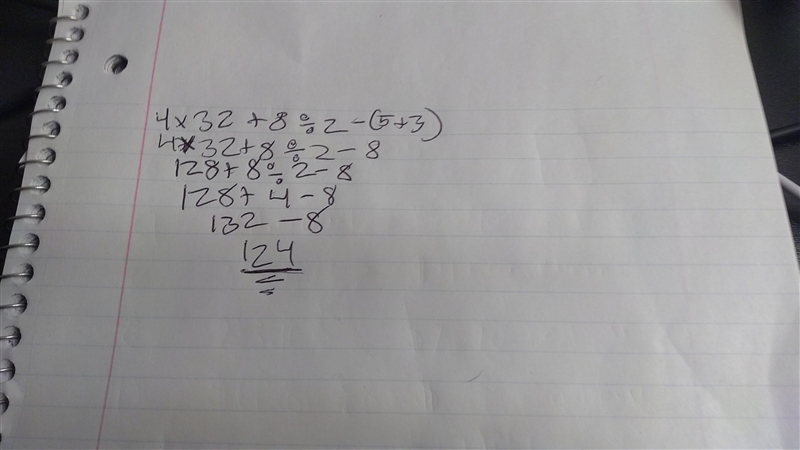 4×32+8÷2-(5+3)
4×32+8÷2-8
128+8÷2-8
128+4-8
132-8
124